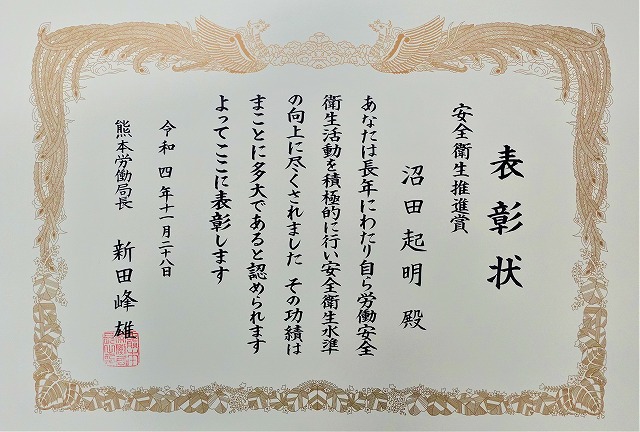 表彰状
安全衛生推進賞
沼田起明 殿
あなたは長年にわたり自ら労働安全
衛生活動を積極的に行い安全衛生水準
の向上に尽くされました その功績は
まことに多大であると認められます
よってここに表彰します
令和四年十一月二十八日
熊本労働局長 新田峰雄